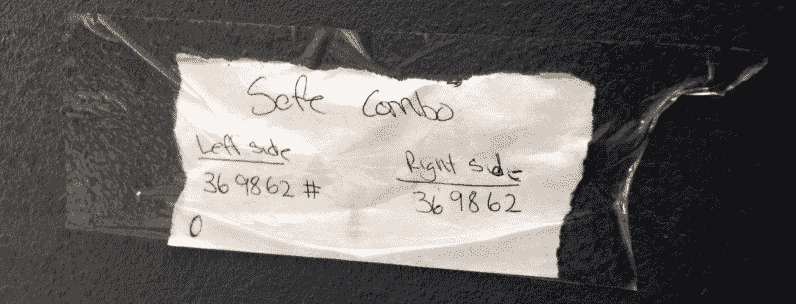 Safe Combo
Left side
369862 #
0
Right side
369862